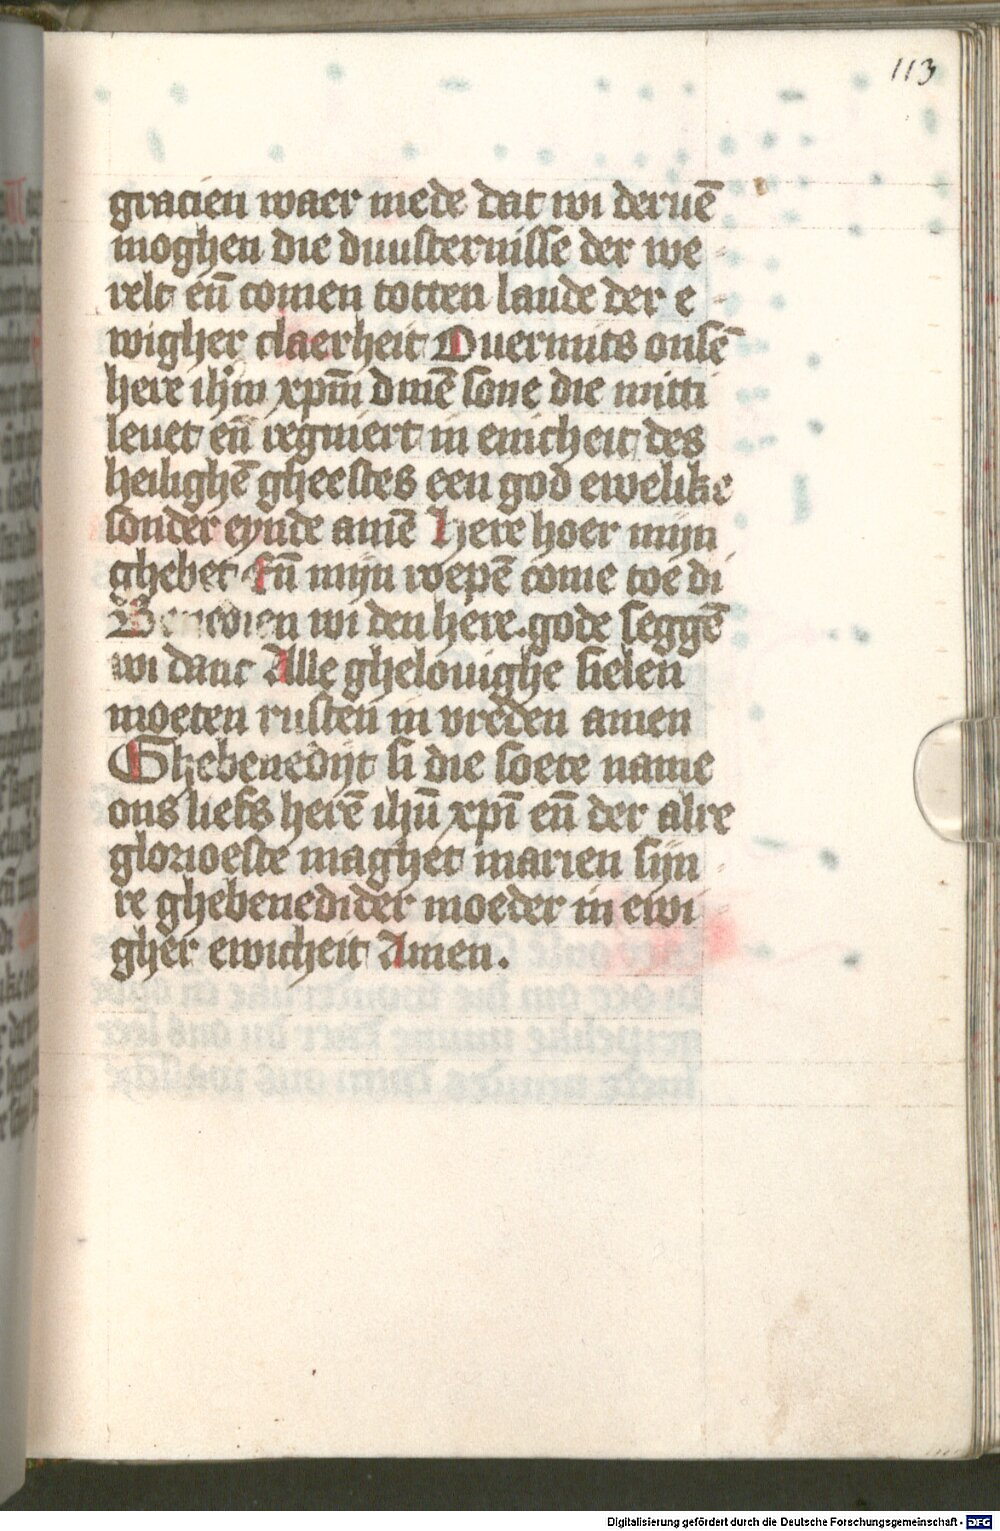 113
gracien waer mede dat wi deruē
moghen die duusternisse der we
relt eñ comen totten lande der e
wigher claerheit Ouermits onsē
here ihm xpm̄ dinē sone die mitti
leuet eñ regniert in enicheit des
heilighē gheestes een god ewelike
sonder eynde amē here hoer mijn
ghebet Eñ mijn roepē come toe di
Benedien wi den here. gode seggē
wi danc Alle ghelouighe sielen
moeten rusten in vreden amen
Ghebenedijt si die soete name
ons liefs herē ihū xpī eñ der alre
glorioeste maghet marien sijn
re ghebenedider moeder in ewi
gher ewicheit Amen.
Digitalisierung gefördert durch die Deutsche Forschungsgemeinschaft - DFG